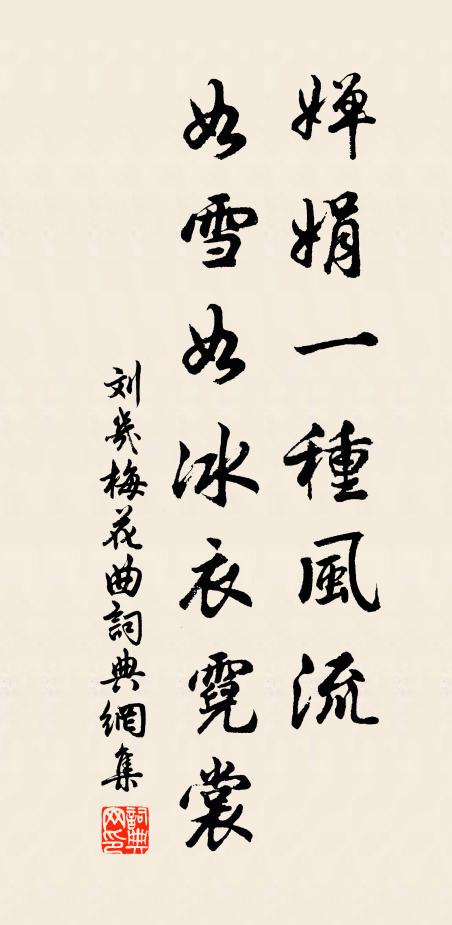 嬋娟一種風流
如雪如冰衣霓裳
刘幾梅花曲詞典網集
詞典网印